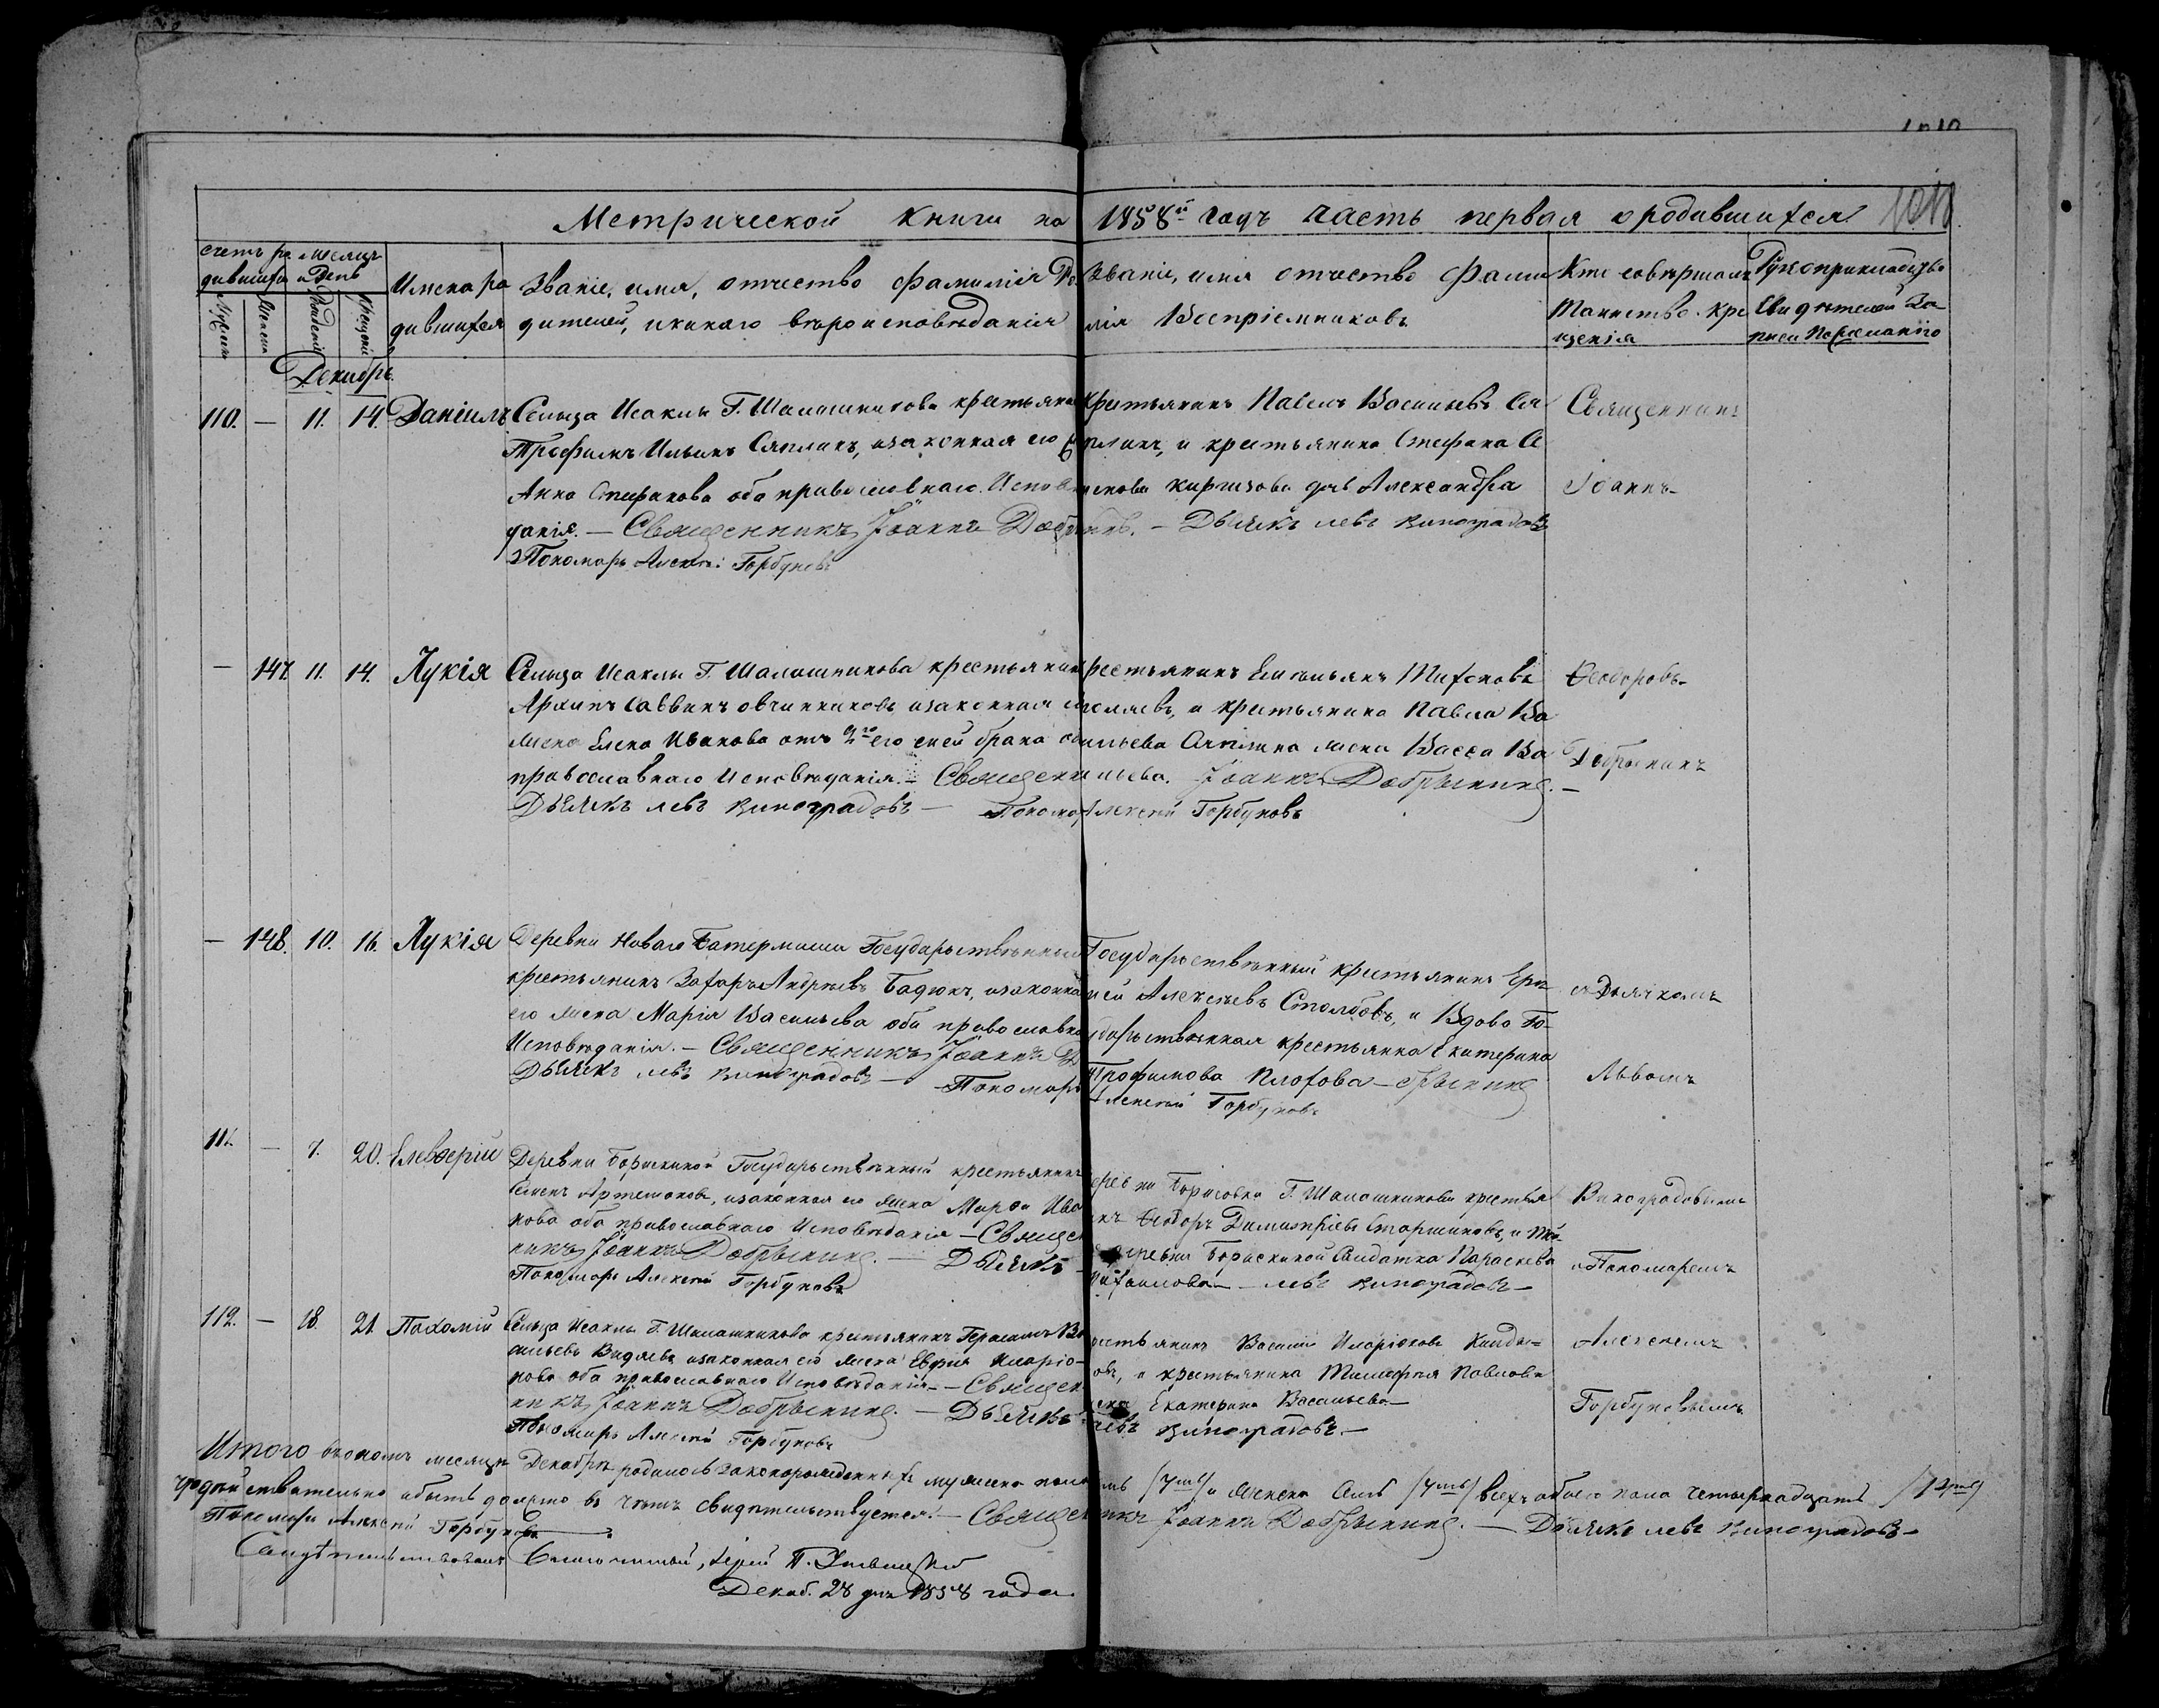 Метрической книги на 1858й годъ часть первая о родившихся
счетъ ро дившихся
месяцъ и День
Имена ро
дившихся
Званіе, имя, отчество фамилія Ро
дителей, и какаго вѣроисповѣданія
Званіе, имя отчество Фами
лія Воспріемниковъ
Кто совѣршалъ
Таинство Кре
щенія
Рукоприкладство
Свидѣтелей За
писи По желанію
Декабрь.
110. — 11. 14. Даніилъ
Сельца Исаклы Г. Шалашникова крестьянинъ
Трофимъ Ильинъ Сяплинъ, и законная его
Анна Стефанова оба православнаго Исповѣ
данія. — Священникъ Іоаннъ Добрынинъ. — Дьячекъ левъ Виноградовъ
Пономарь Алексѣй Горбуновъ
Крестьянинъ Павелъ Васильевъ Ся
плинъ, и крестьянина Стефана
Киргизова дочь Александра
Священникъ
Іоаннъ
— 147. 11. 14. Лукія
Сельца Исаклы Г. Шалашникова крестьянинъ
Архипъ Саввинъ овчинниковъ и законная его
жена Елена Иванова отъ 2го его с ней брака оба
православнаго Исповѣданія. — Священникъ Іоаннъ Добрынинъ. —
Дьячекъ левъ Виноградовъ — Пономарь Алексѣй Горбуновъ
Крестьянинъ Емельянъ Тихоновъ
и крестьянина Павла Ва
сильева Сяплина жена Васса Ва
сильева.
Ѳеодоровъ
Добрынинъ
— 148. 10. 16. Лукія
Деревни Новаго Батермыша Государственный
крестьянинъ Захаръ Андреевъ Бадюкъ, и законная
его жена Марія Васильева оба православнаго
Исповѣданія. — Священникъ Іоаннъ Добрынинъ
Дьячекъ левъ Виноградовъ — Пономарь Алексѣй Горбуновъ
Государственный крестьянинъ
Алексѣевъ Столбовъ, и Вдова Го
сударственная крестьянка Екатерина
Трофимова Плохова —
съ Дьячкомъ
Львомъ
111. — 7. 20. Елевѳерій
Деревни Борискиной Государственный крестьянинъ
Семенъ Артемоновъ, и законная его жена Марѳа Ива
нова оба православнаго Исповѣданія — Священ
никъ Іоаннъ Добрынинъ. — Дьячекъ левъ Виноградовъ —
Пономарь Алексѣй Горбуновъ
Деревни Борисовки Г. Шалашникова крестья
нинъ Ѳеодоръ Димитріевъ Старшиновъ, и
деревни Борискиной Солдатка Параскева
Михаилова —
Виноградовымъ
и Пономаремъ
112. — 18. 21. Пахомій
Сельца Исаклы Г. Шалашникова крестьянинъ Герасимъ Ва
сильевъ Видяевъ и законная его жена Евфимія Иларіо
нова оба православнаго Исповѣданія. — Священ
никъ Іоаннъ Добрынинъ. — Дьячекъ левъ Виноградовъ. —
Пономарь Алексѣй Горбуновъ
Крестьянинъ Василій Иларіоновъ
и крестьянина Тимофея Павлова
жена Екатерина Васильева —
Алексѣемъ
Горбуновымъ
Итого въ ономъ месяцѣ Декабрѣ родилось законорожденныхъ мужеска пола /7мь/ и женска Семь /7мь/ всехъ обоего пола четырнадцать
что дѣйствительно и быть должно въ чемъ свидѣтельствуется. — Священникъ Іоаннъ Добрынинъ. — Дьячекъ левъ Виноградовъ —
Пономарь Алексѣй Горбуновъ
Свидѣтельствовалъ Благочинный, Іерей П.
Декаб. 28 дня 1858 года